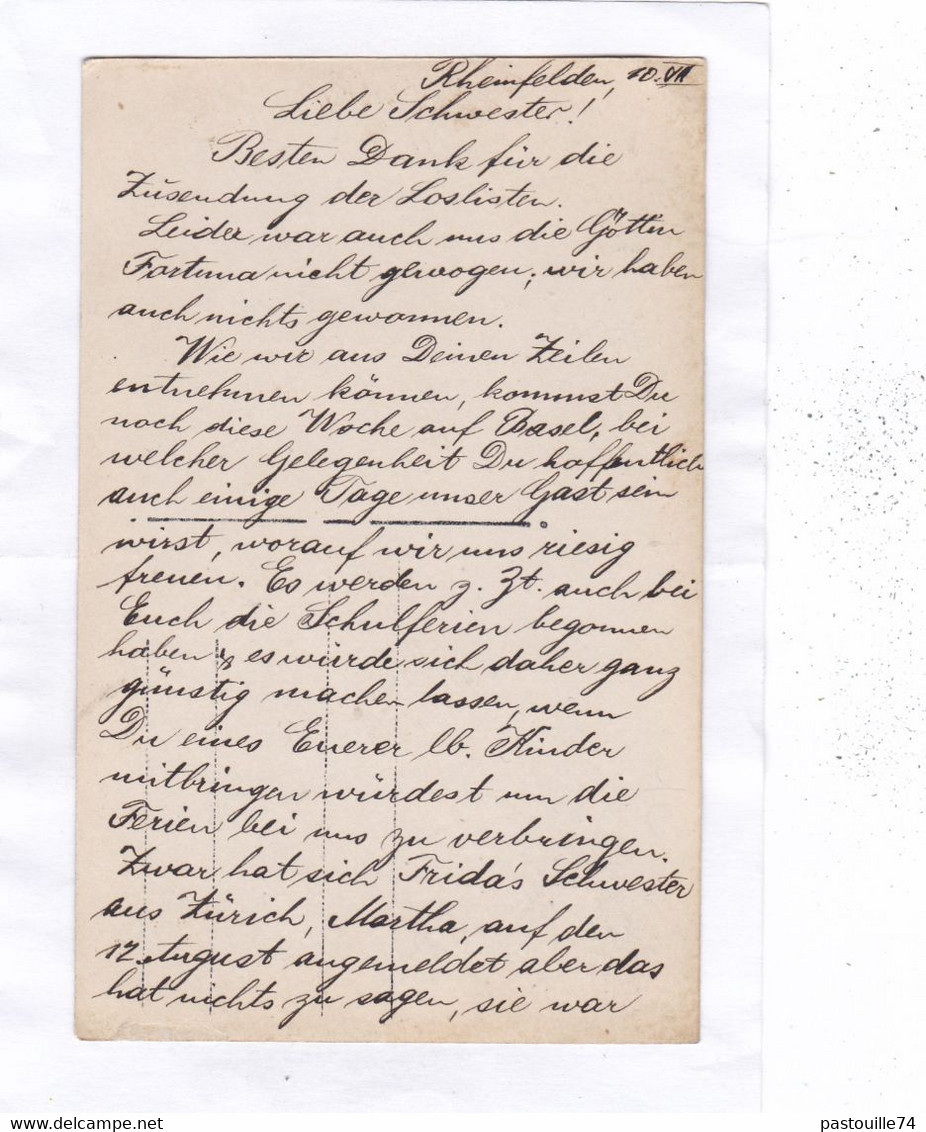 Rheinfelden, 10. VII
Liebe Schwester!
Besten Dank für die
Zusendung der Loslisten.
Leider war auch uns die Göttin
Fortuna nicht gewogen; wir haben
auch nichts gewonnen.
Wie wir aus Deinen Zeilen
entnehmen können, kommst Du
noch diese Woche auf Basel, bei
welcher Gelegenheit Du hoffentlich
auch einige Tage unser Gast sein
wirst, worauf wir uns riesig
freuen. Es werden z. Zt. auch bei
Euch die Schulferien begonnen
haben & es würde sich daher ganz
günstig machen lassen, wenn
Du eines Euerer lb. Kinder
mitbringen würdest um die
Ferien bei uns zu verbringen.
Zwar hat sich Frida's Schwester
aus Zürich, Martha, auf den
12. August angemeldet aber das
hat nichts zu sagen, sie war
pastouille74